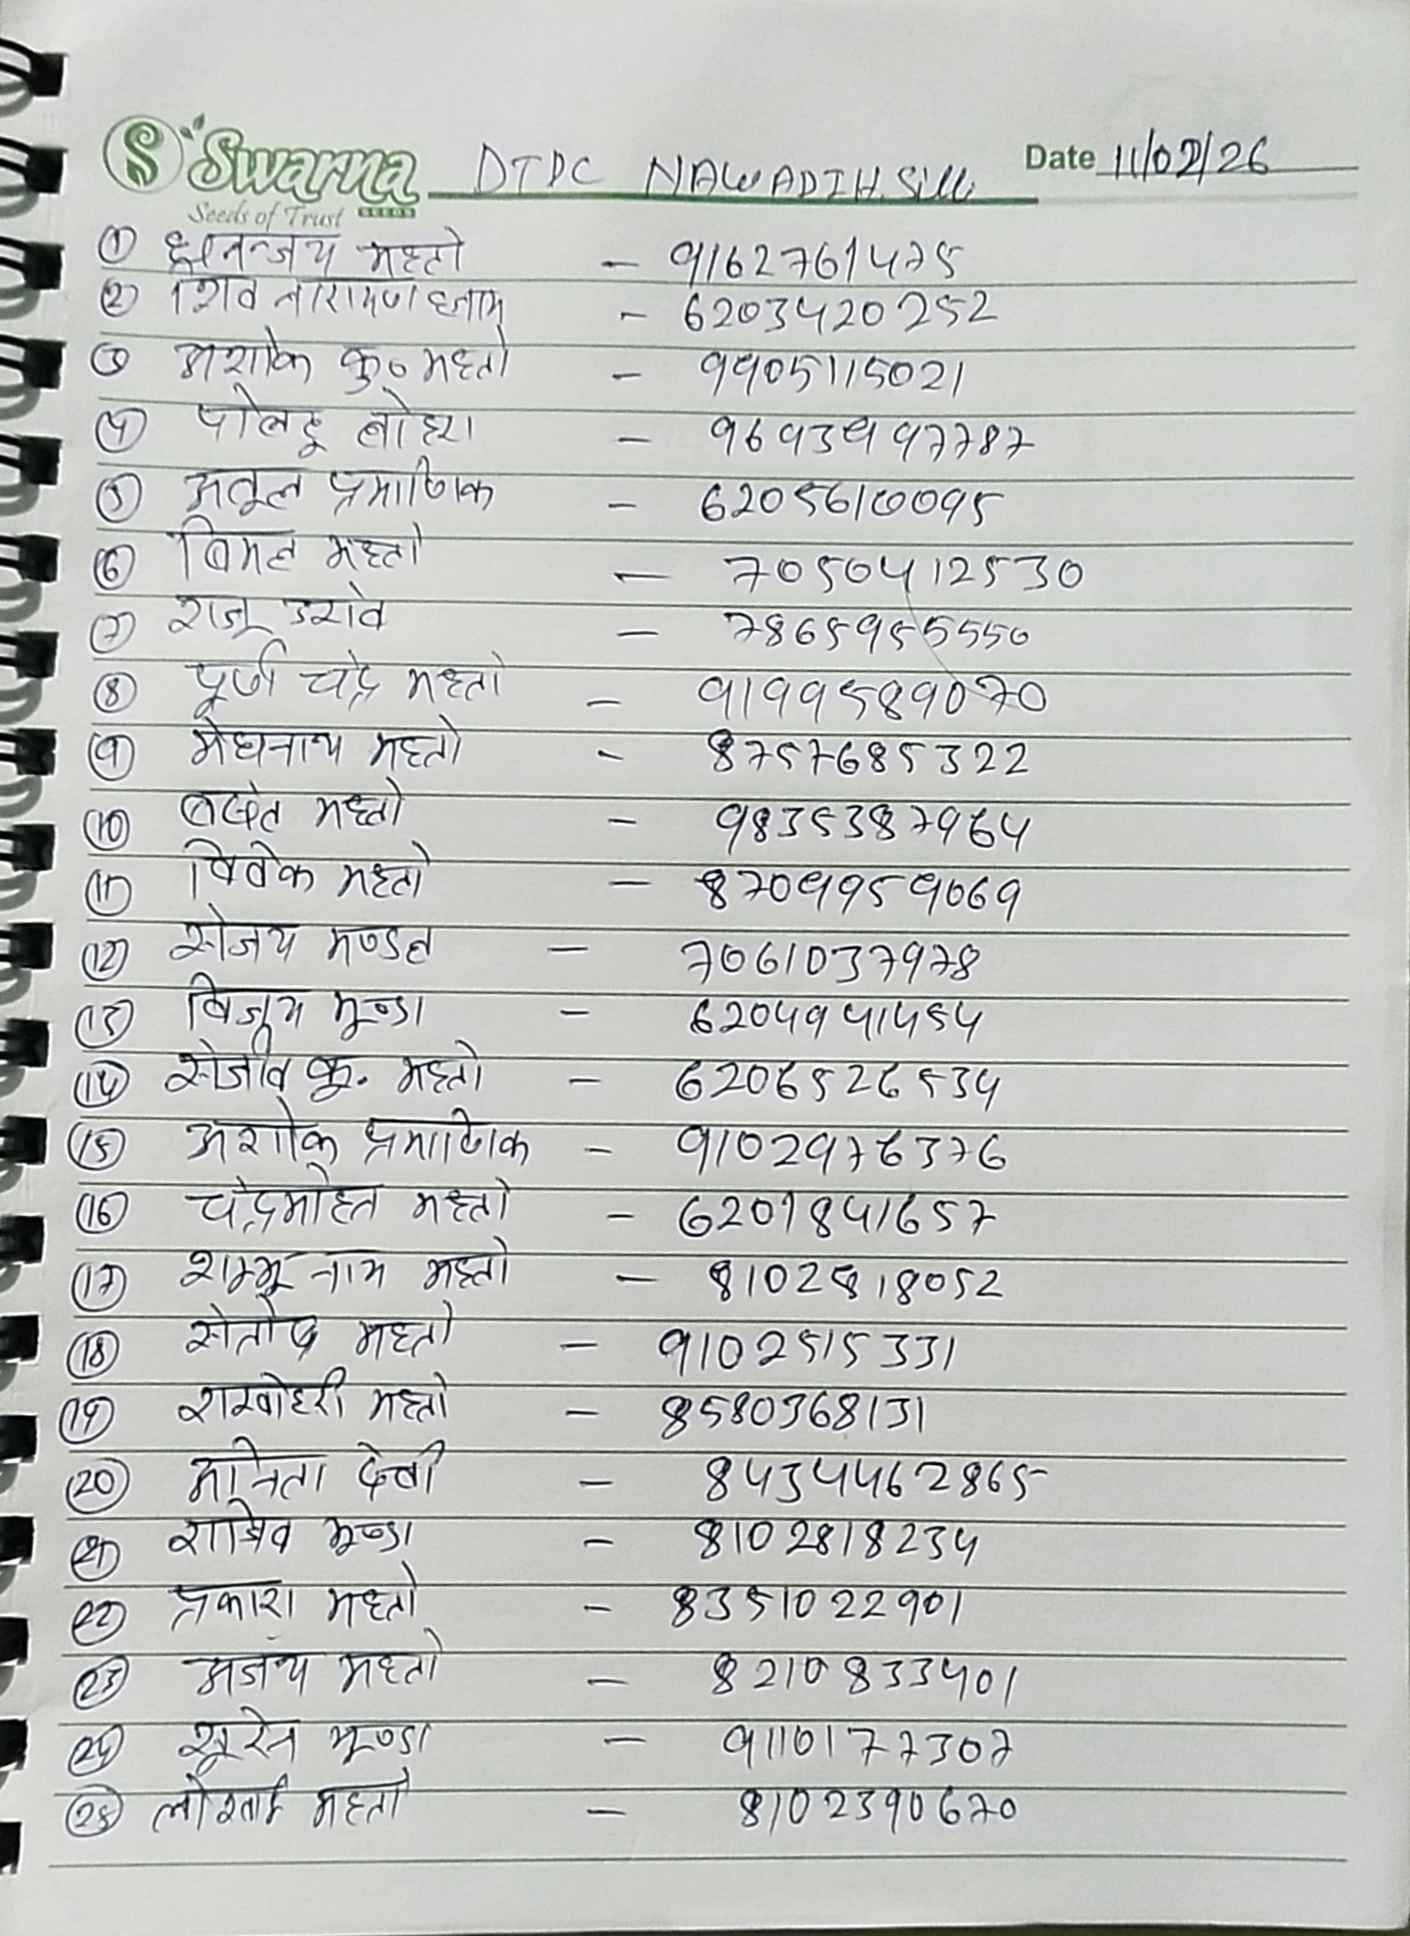 Swarna
Seeds of Trust SEEDS
DTDC NAWADIH, Silli Date 11/02/26
① धनन्जय महतो - 9162761475
② शिव नारायण - 6203420252
③ अशोक कु० महतो - 9905115021
④ पोलटू बोहरा - 9693997787
⑤ अतूल प्रमाणिक - 6205610095
⑥ बिमल महतो - 70504 12530
⑦ राजू उरांव - 7865955550
⑧ पूर्ण चंद्र महतो - 9199589070
⑨ मेघनाथ महतो - 8757685322
⑩ महतो - 9835387964
⑪ विवेक महतो - 8709959069
⑫ संजय मण्डल - 7061037978
⑬ विजय मूण्डा - 6204941454
⑭ संजीव कु. महतो - 6206526534
⑮ अशोक प्रमाणिक - 9102976376
⑯ चंद्रमोहन महतो - 6201841657
⑰ शम्भू नाथ महतो - 8102818052
⑱ संतोष महतो - 9102515331
⑲ राखोहरी महतो - 8580368131
⑳ देवी - 8434462865
㉑ मूण्डा - 8102818234
㉒ प्रकाश महतो - 8351022901
㉓ अजय महतो - 8210833401
㉔ सूरेन मूण्डा - 9110177307
㉕ महतो - 8102390670